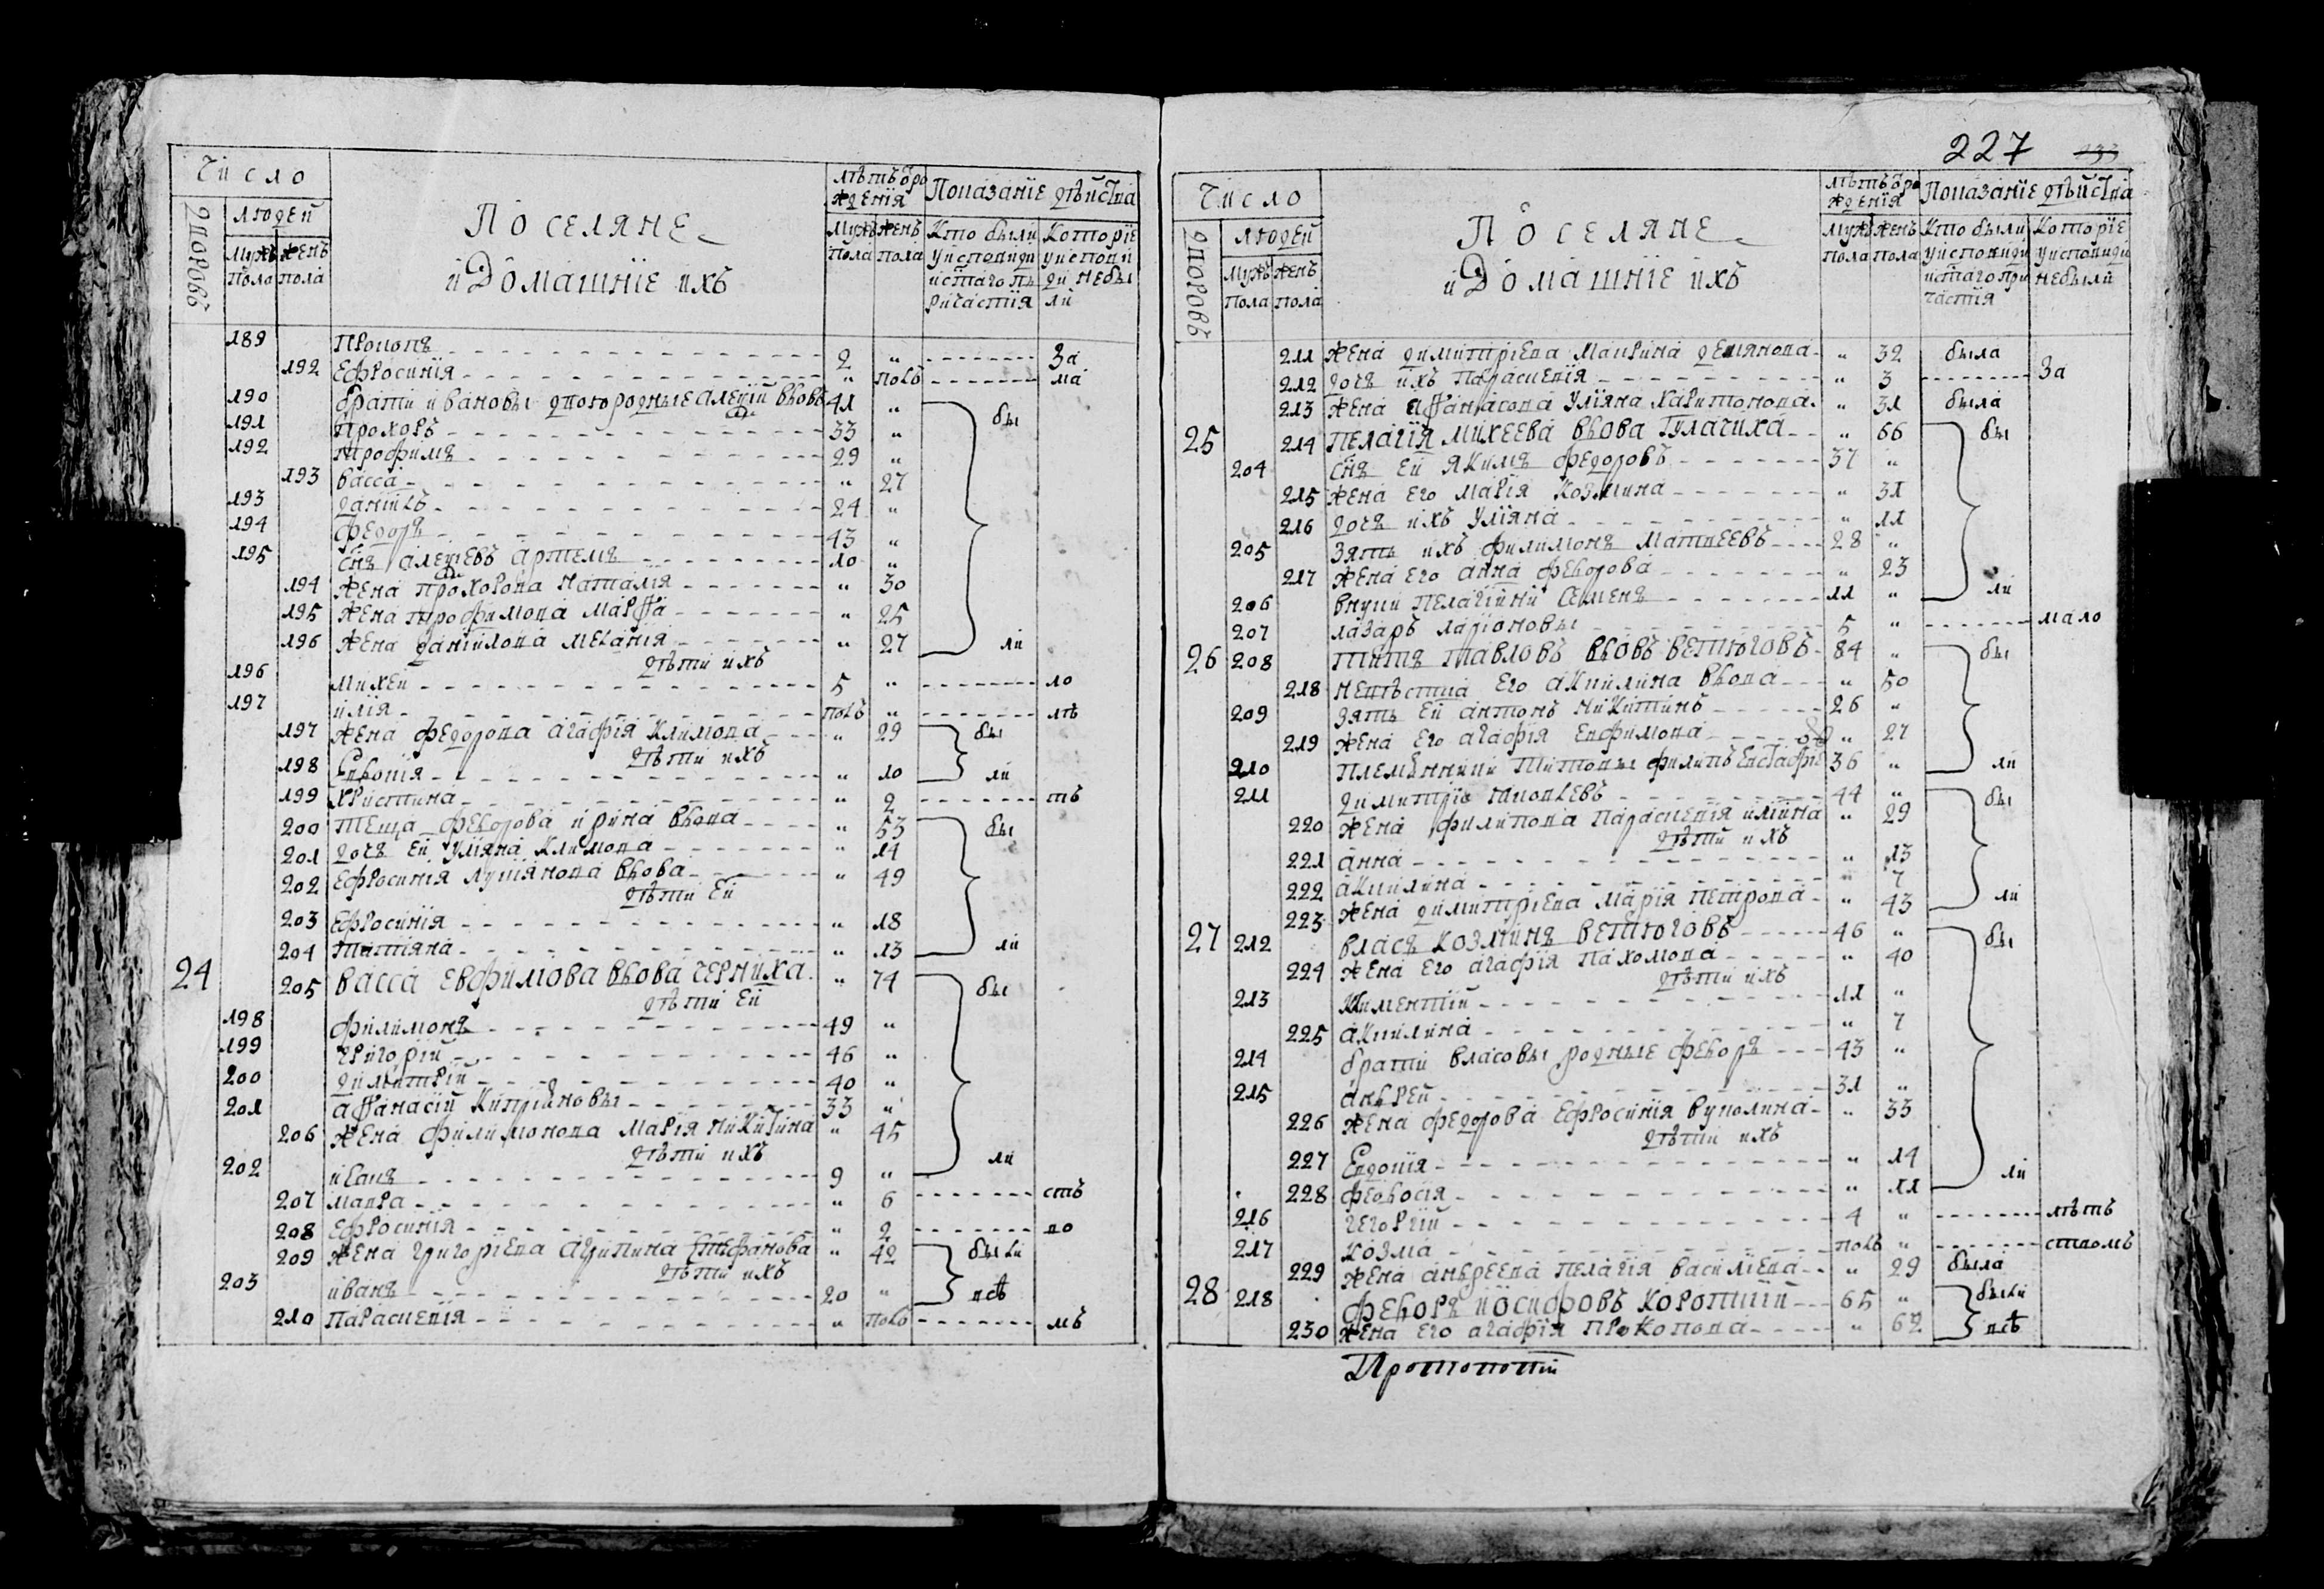 Число
Поселяне
и Домашніе ихъ
лѣтъ о рождения
Показаніе дѣйства
дворовъ
людей
мужъ пола
женъ пола
Мужъ пола
женъ пола
Кто были у исповеди и стаго причастія
Которіе у исповиди не были
189 Прокопъ 2 " За
192 Ефросинія " полъ ма
190 брати ивановы двоюродные алексій вдовъ 41 " бы
191 Прохоръ 33 "
192 Трофимъ 29 "
193 Васса " 27
193 даніилъ 24 "
194 федоръ 43 "
195 снъ алексевъ артемъ 10 "
194 жена Прохорова Наталія " 30
195 жена трофимова марѳа " 25
196 жена даніилова меланія " 27 ли
дѣти ихъ
196 Михей 5 " ло
197 илія полъ " лѣ
197 жена федорова агафія климова " 29 бы
дѣти ихъ
198 Евдокія " 10 ли
199 Христина " 2 тъ
200 теща федорова ирина вдова " 53 бы
201 дочъ ей уліяна климова " 14
202 Ефросинія лукіянова вдова " 49
дѣти ей
203 Ефросинія " 18
204 татіяна " 13 ли
24 205 Васса Евфимова вдова Черниха " 74 бы
дѣти ей
198 филимонъ 49 "
199 григорій 46 "
200 димитрій 40 "
201 аѳанасій Кипріановы 33 "
206 жена филимонова марія никитина " 45
дѣти ихъ
202 иванъ 9 " ли
207 мавра " 6 стъ
208 Ефросинія " 2 во
209 жена григоріева агрипина стефанова " 42 были
дѣти ихъ
203 иванъ 20 " всѣ
210 Параскевія " полъ мъ
227 233
Число
Поселяне
и Домашніе ихъ
лѣтъ о рождения
Показаніе дѣйства
дворовъ
людей
мужъ пола
женъ пола
Мужъ пола
женъ пола
Кто были у исповиди и стаго причастія
Которіе у исповиди не были
211 жена димитріева Маврина демянова " 32 была
212 дочъ ихъ Параскевія " 3 За
213 жена аѳанасова Уліяна Харитонова " 31 была
25 214 Пелагія михеева вдова Гулачиха " 66 бы
204 снъ ей якимъ федоровъ 37 "
215 жена его марія козмина " 31
216 дочъ ихъ уліяна " 11
205 зять ихъ филимонъ матвеевъ 28 "
217 жена его анна федорова " 23
206 внуки пелагіини семенъ 11 " ли
207 лазаръ ларіоновы 5 " мало
26 208 Титъ Павловъ вдовъ Ветюговъ 84 " бы
218 невѣстка его акилина вдова " 50
209 зять ей антонъ никитинъ 26 "
219 жена его агафія Евфимова " 27
210 племянники титовы филипъ Евстафіе 36 " ли
211 димитріе яковлевъ 44 " бы
220 жена филипова Параскевія илііна " 29
дѣти ихъ
221 анна " 13
222 акилина " 7
223 жена димитріева марія петрова " 43 ли
27 212 Власъ Козминъ Ветюговъ 46 " бы
224 жена его агафія пахомова " 40
дѣти ихъ
213 климентій 11 "
225 акилина " 7
214 брати власовы родные федоръ 43 "
215 андрей 31 "
226 жена федорова Ефросинія вуколина " 33
дѣти ихъ
227 Евдокія " 14
228 феодосія " 11 ли
216 гегоргій 4 " лѣтъ
217 козма полъ " ствомъ
229 жена андреева пелагія василіева " 29 была
28 218 федоръ іосифовъ короткій 65 " были
230 жена его агафія прокопова " 62 всѣ
Протопопъ